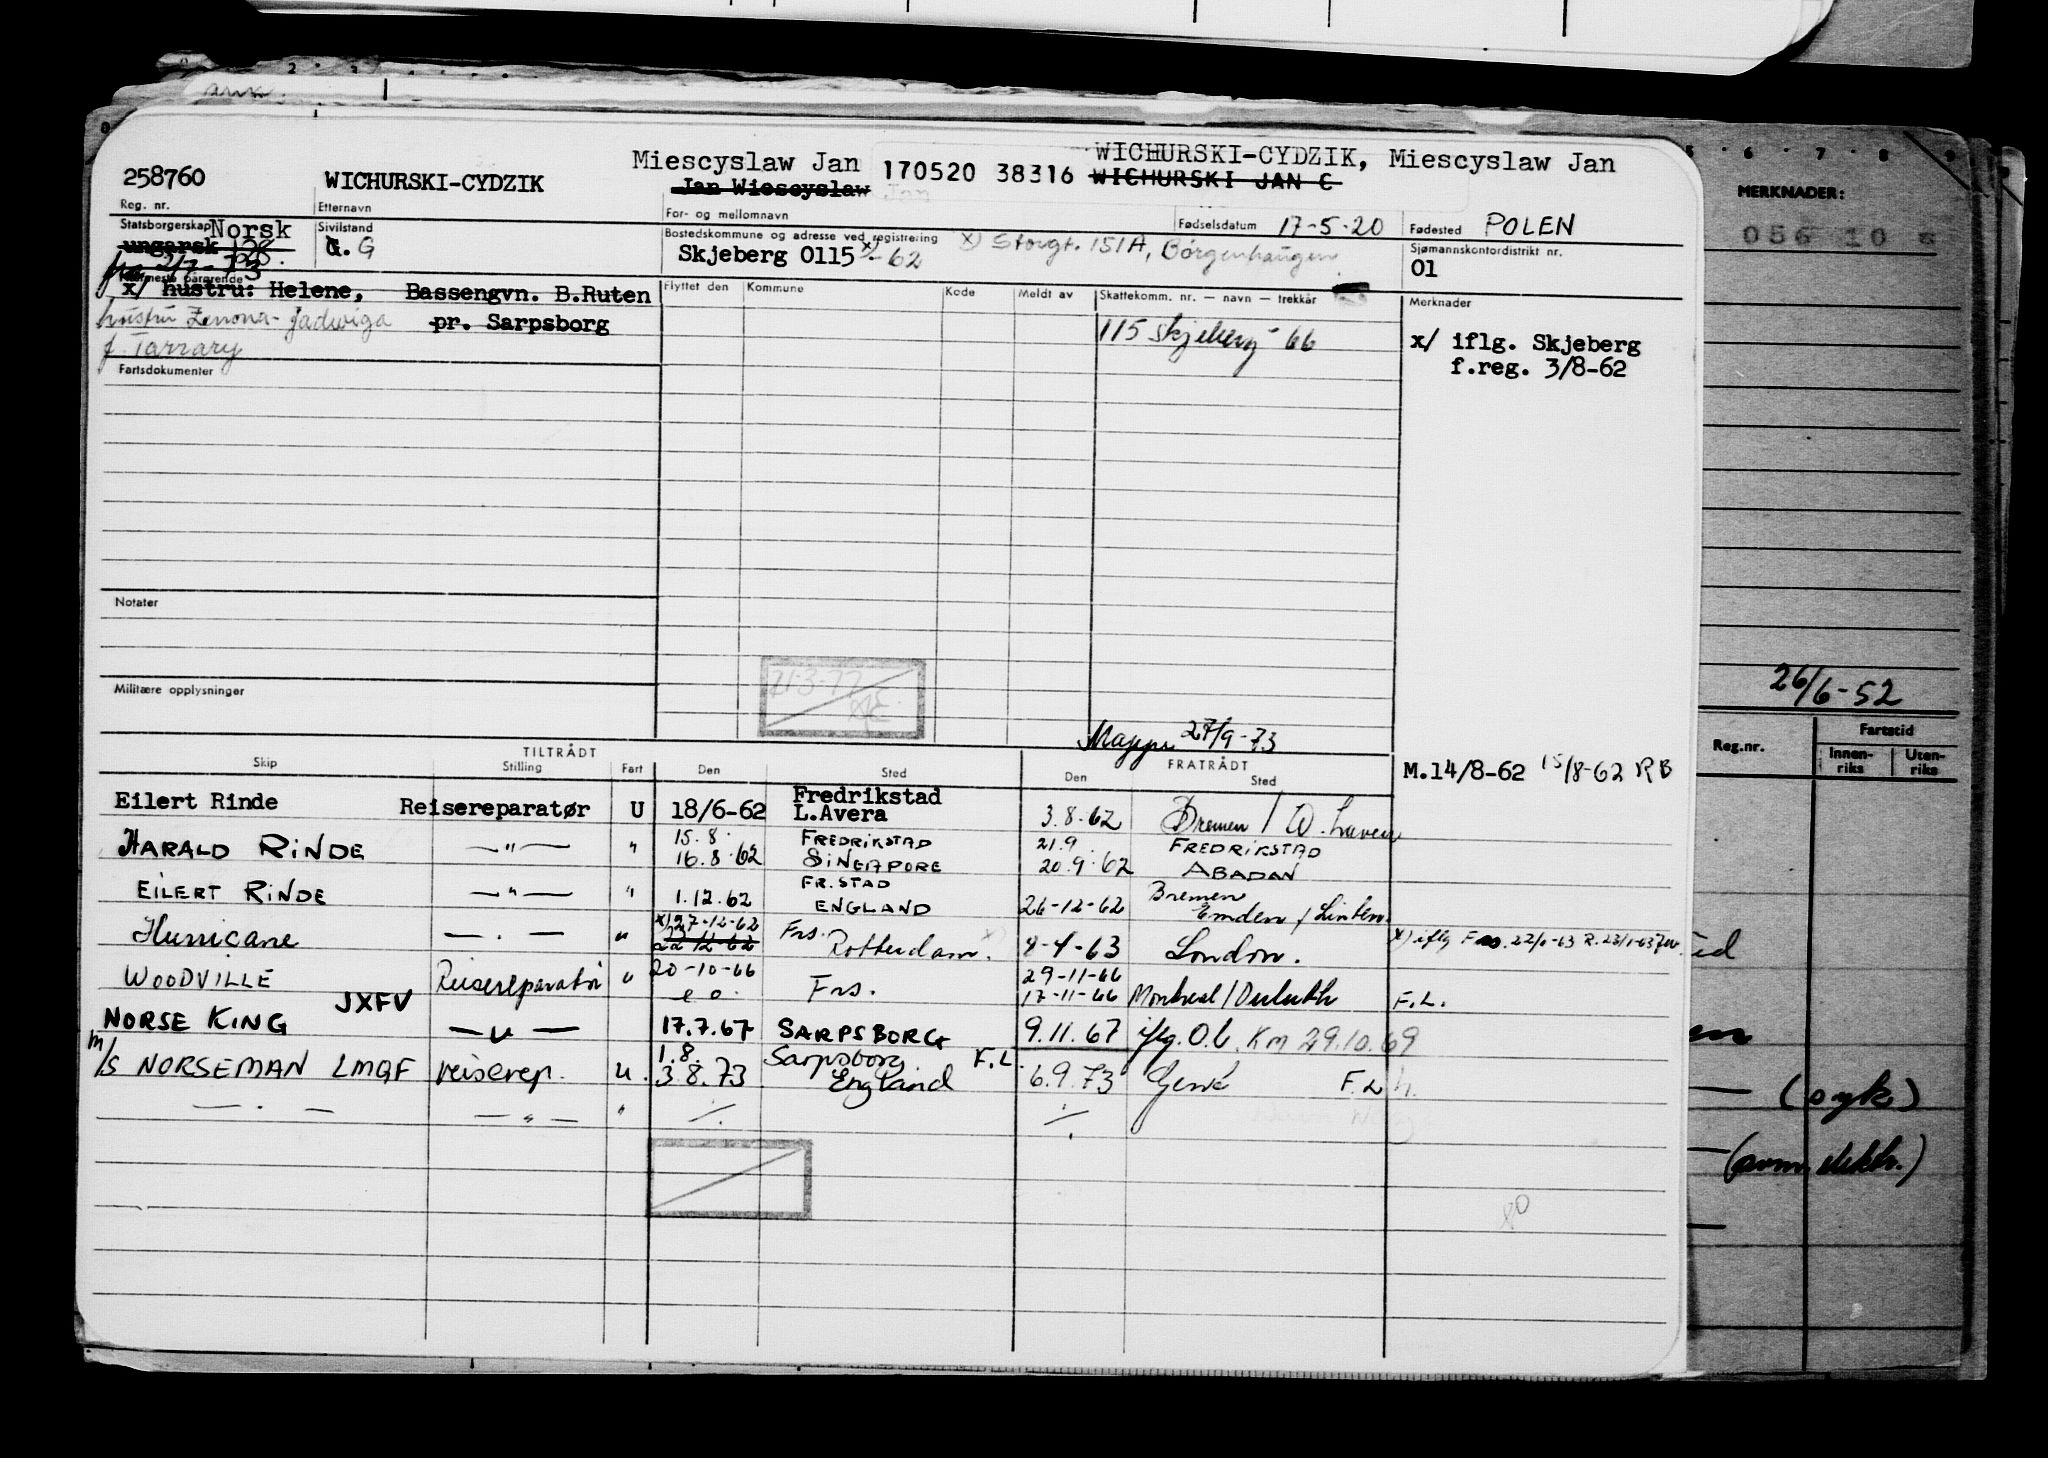 258760
WICHURSKI-CYDZIK
Miescyslaw Jan
Jan Wiescyslaw
170520 38316
WICHURSKI-CYDZIK, Miescyslaw Jan
WICHURSKI JAN C
Reg. nr.
Etternavn
For- og mellomnavn
Fødselsdatum 17-5-20
Fødested POLEN
Statsborgerskap Norsk
ungarsk 128.
fra 2/7-73
Sivilstand
U. G
Bostedskommune og adresse ved registrering
Skjeberg 0115 x)-62
x) Storgt. 151A, Borgenhaugen
Sjømannskontordistrikt nr.
01
Nærmeste pårørende
x/ hustru: Helene, Bassengvn. B.Ruten
pr. Sarpsborg
hustru Zenona-Jadwiga
f. Tarrary
Flyttet den
Kommune
Kode
Meldt av
Skattekomm. nr. — navn — trekkår
115 Skjeberg - 66
Merknader
x/ iflg. Skjeberg
f.reg. 3/8-62
Fartsdokumenter
Notater
Militære opplysninger
21-3-77
Mappe 27/9-73
TILTRÅDT
FRATRÅDT
Skip
Stilling
Fart
Den
Sted
Den
Sted
M.14/8-62 15/8-62 RB
Eilert Rinde Reisereparatør U 18/6-62 Fredrikstad
L.Avera 3.8.62 Bremen / W. haven
HARALD RINDE —"— " 15.8. FREDRIKSTAD 21.9. FREDRIKSTAD
16.8.62 SINGAPORE 20.9.62 ABADAN
EILERT RINDE —"— " 1.12.62 FR.STAD
ENGLAND 26-12-62 Bremen
Emden /
Hurricane — . — " x) 27-12-62
22-12-62 Frs. Rotterdam. x) 8-4-63 London.
x) iflg
WOODVILLE Reisereparatør " 20-10-66 Frs. 29-11-66
17-11-66 Montreal / Duluth F.L.
NORSE KING JXFV — " — 17.7.67 SARPSBORG 9.11.67 iflg. O.b. KM 29.10.69
m/s NORSEMAN LMQF reiserep. U. 1.8. Sarpsborg F.L.
3.8.73 England 6.9.73 F.L
— . — — " — " ./. ./.
5 6 7 8 9
MERKNADER:
056 10
26/6-52
Reg.nr.
Fartstid
Innen-
riks
Uten-
riks
— (syk)